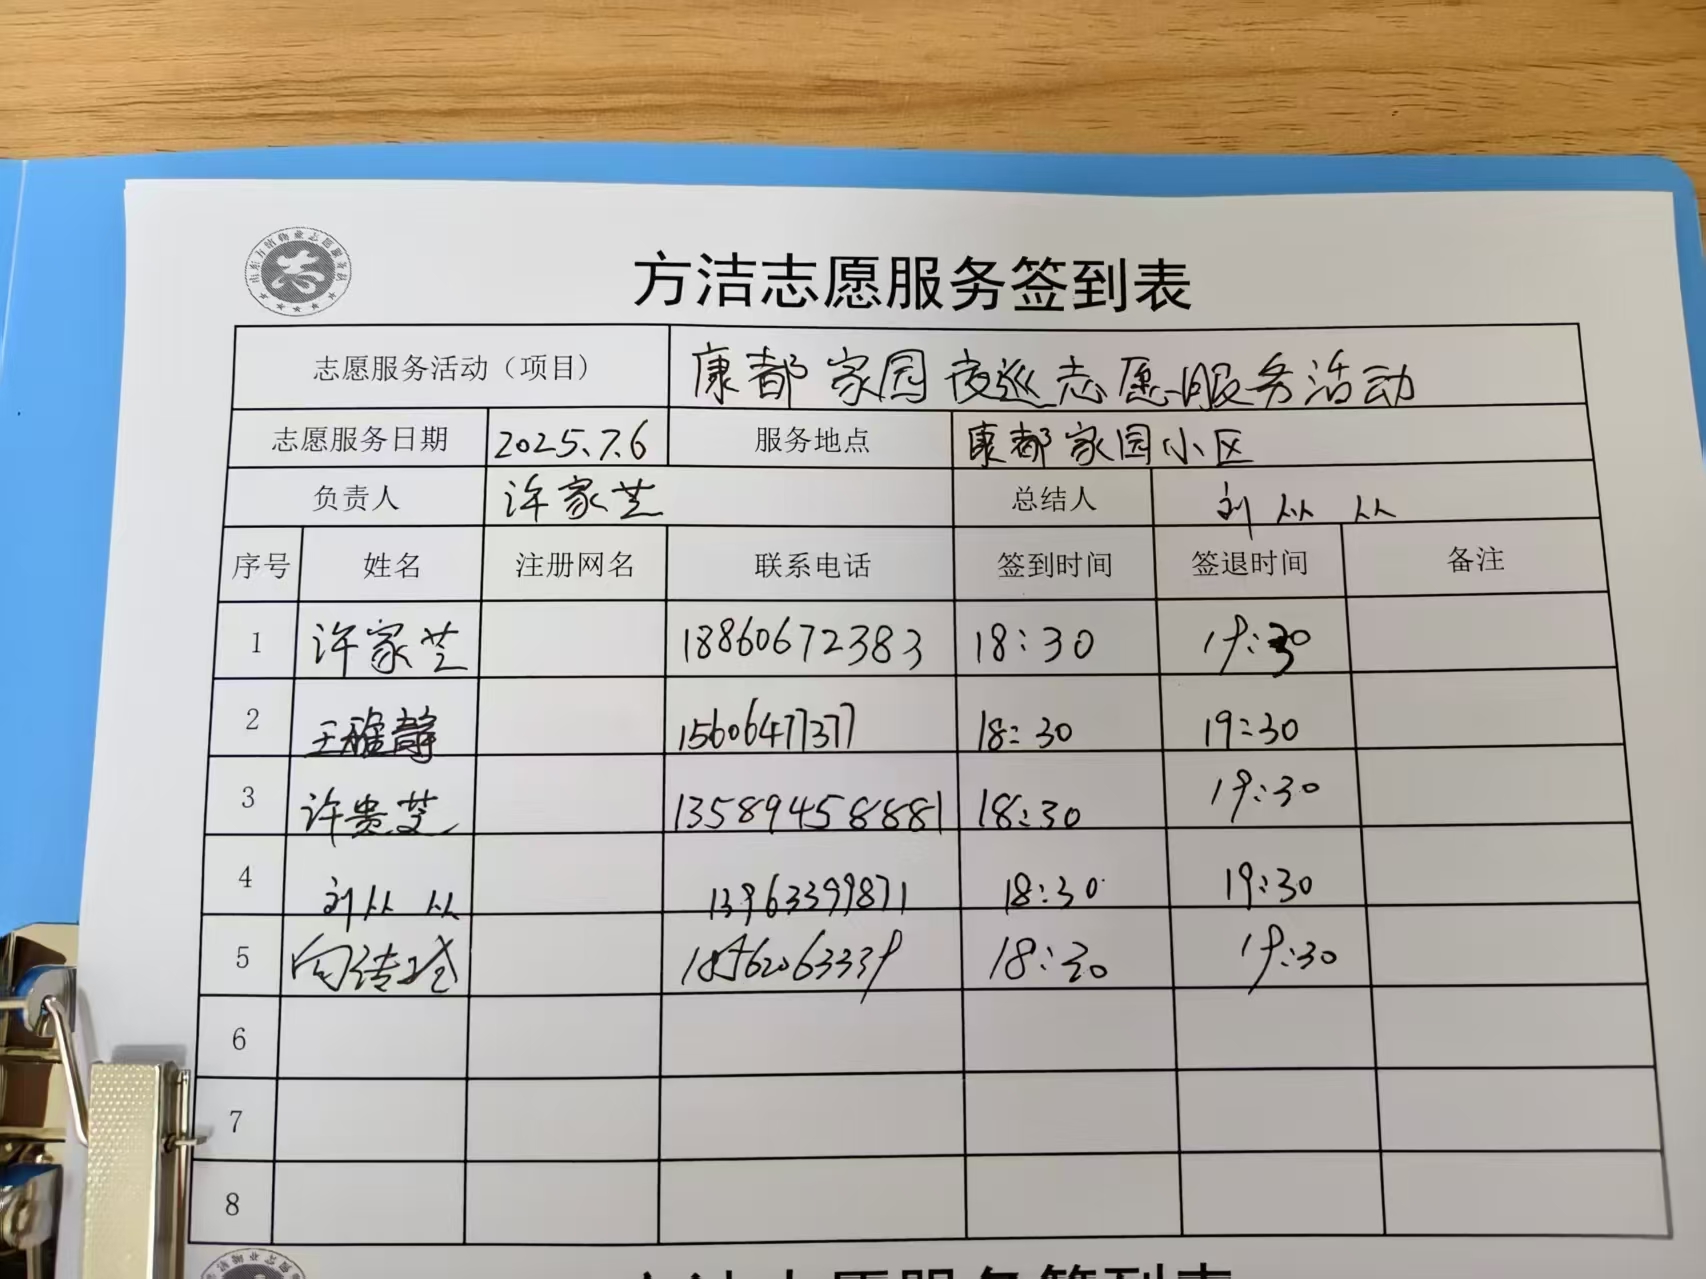 山东方洁物业志愿服务队
方洁志愿服务签到表
志愿服务活动（项目） 康都家园夜巡志愿服务活动
志愿服务日期 2025.7.6 服务地点 康都家园小区
负责人 许家芝 总结人 刘从从
序号 姓名 注册网名 联系电话 签到时间 签退时间 备注
1 许家芝 18860672383 18:30 19:30
2 王雅静 15606477377 18:30 19:30
3 许贵芝 13589458881 18:30 19:30
4 刘从从 13963399871 18:30 19:30
5 18562063339 18:30 19:30
6
7
8
方洁志愿服务签到表